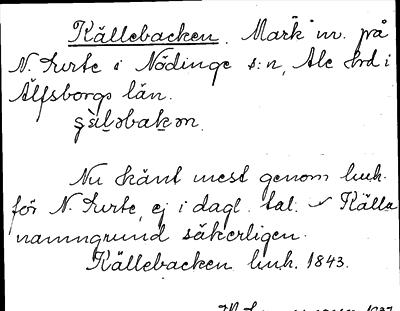 Källebacken. Mark m. på
N. Surte i Nödinge s:n, Ale hrd i
Älfsborgs län.
Nu känt mest genom huk.
för N. Surte, ej i dagl. tal. Källa
namngrund säkerligen.
Källebacken huk. 1843.